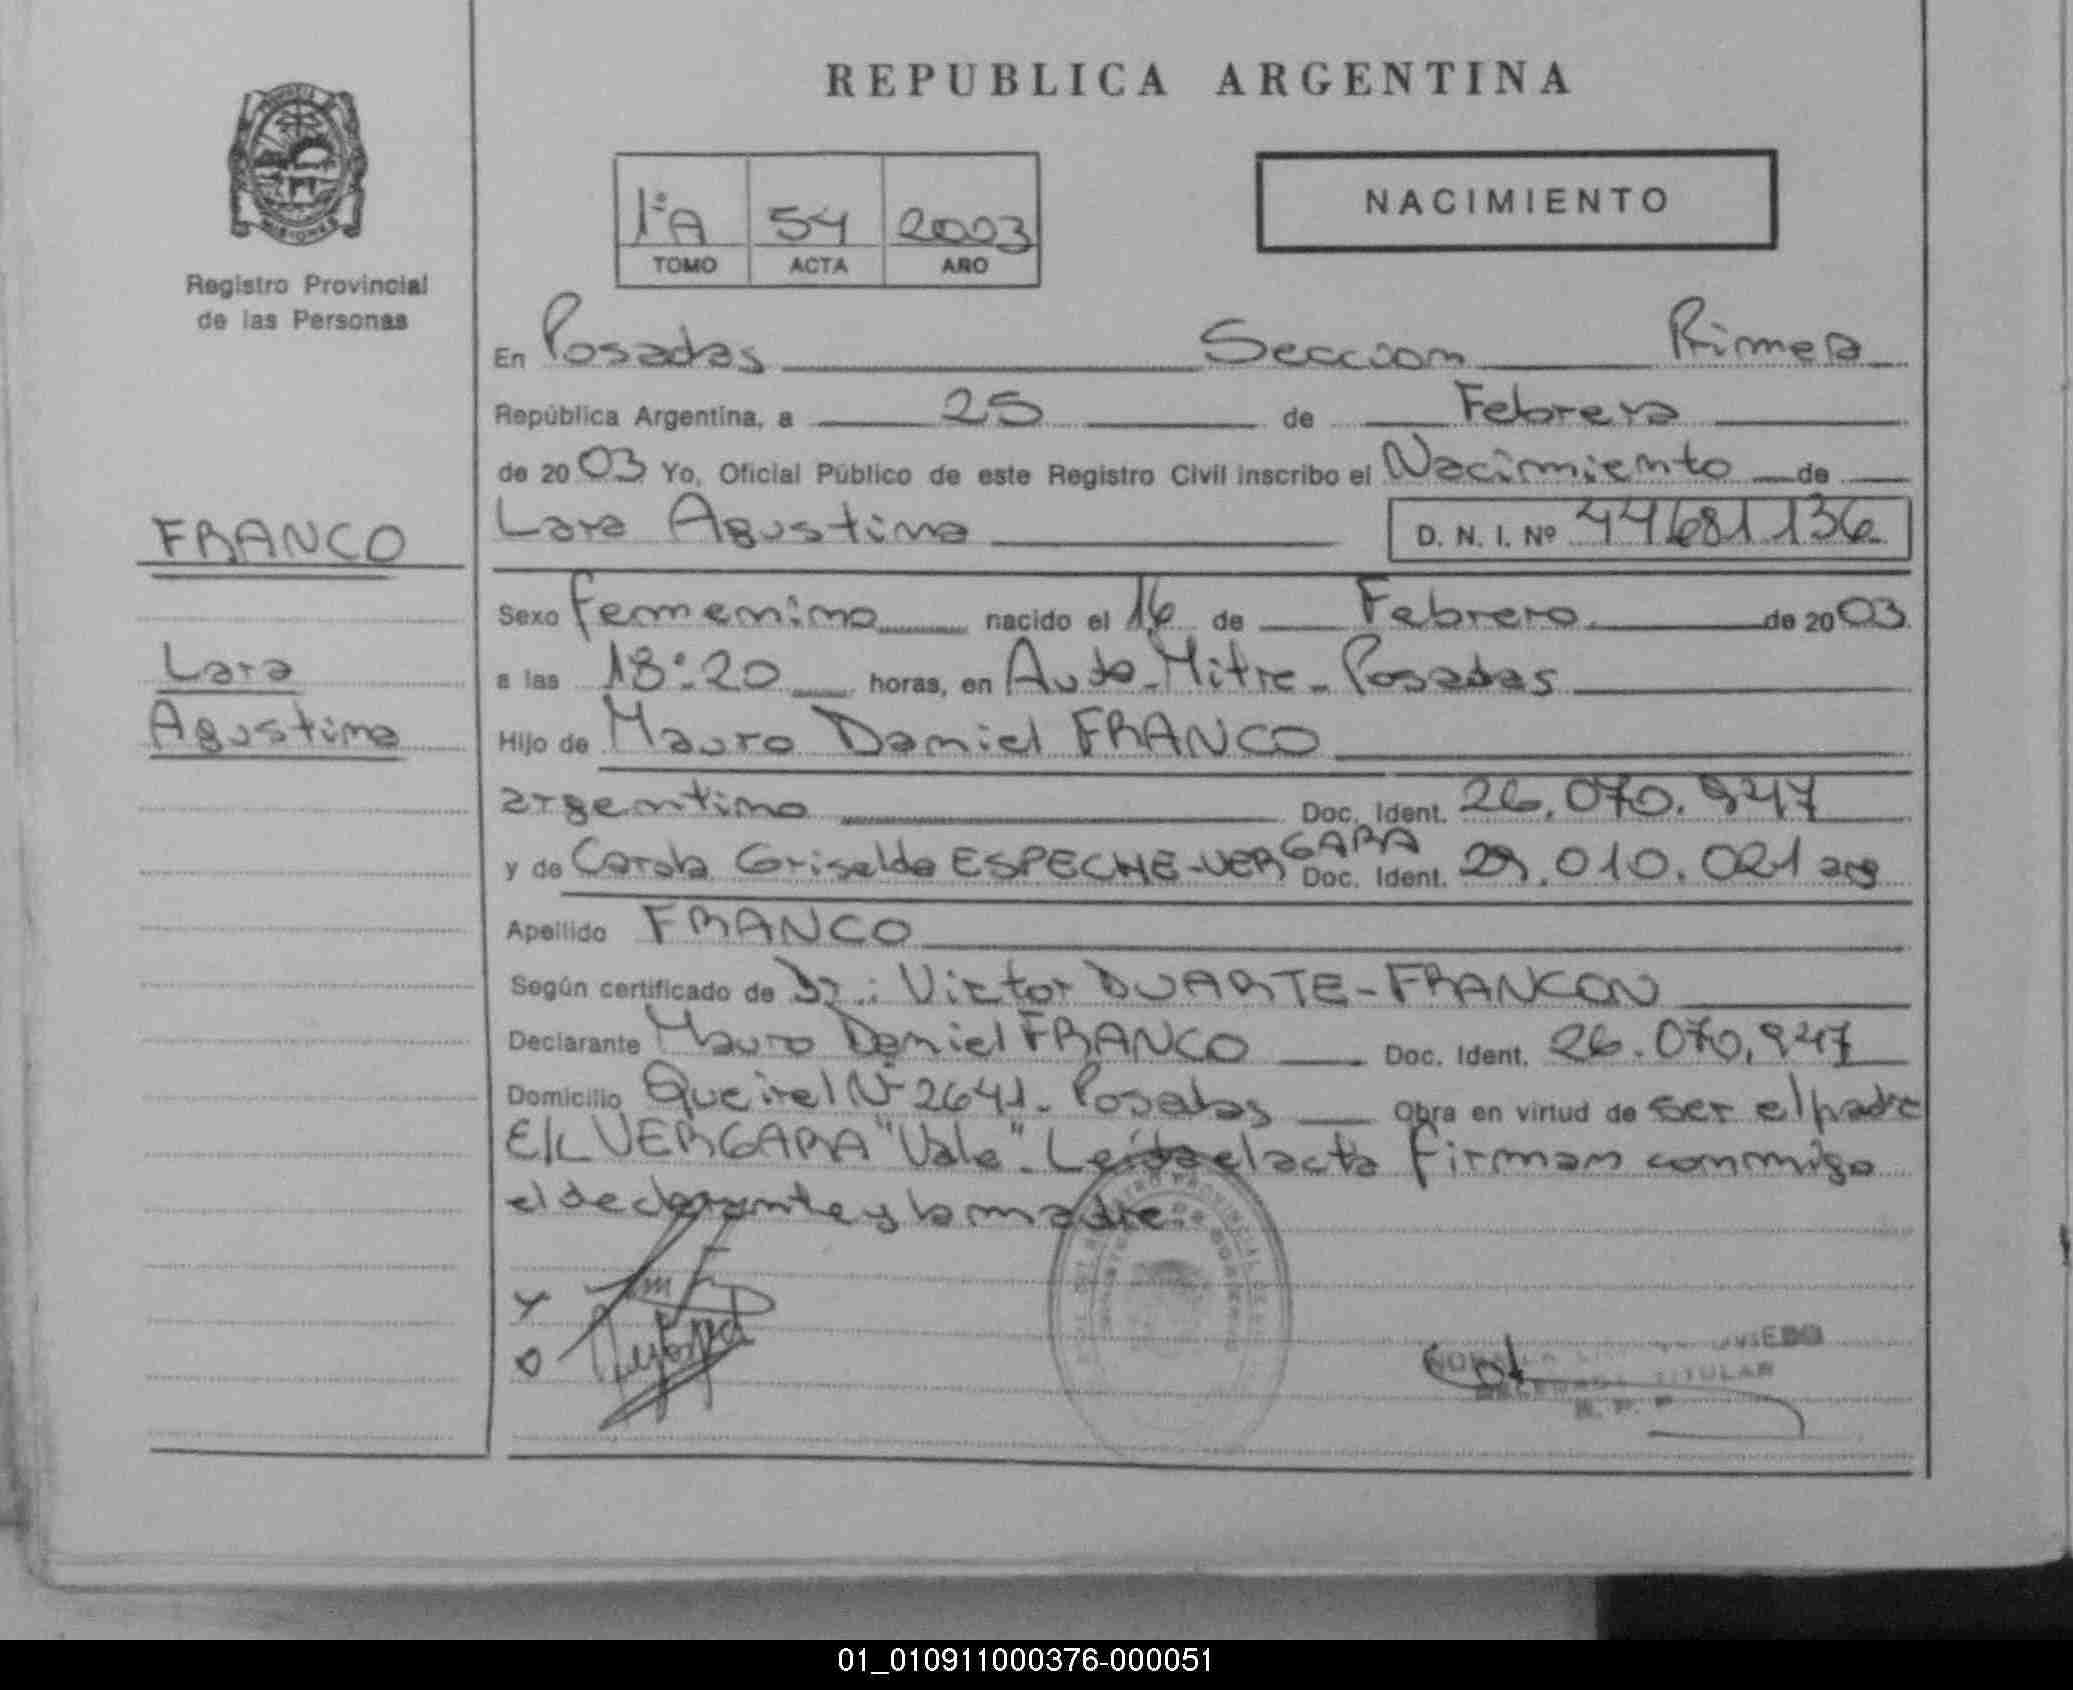 REPUBLICA ARGENTINA
PROVINCIA DE
MISIONES
Registro Provincial
de las Personas
1ºA 54 2003
TOMO ACTA AÑO
NACIMIENTO
En Posadas Seccion Primera
República Argentina, a 25 de Febrero
de 2003 Yo, Oficial Público de este Registro Civil inscribo el Nacimiento de
FRANCO
Lara Agustina D. N. I. Nº 44681136
Sexo femenino nacido el 16 de Febrero de 2003
Lara
a las 18:20 horas, en Avda. Mitre - Posadas
Agustina
Hijo de Mauro Daniel FRANCO
argentino Doc. Ident. 26.070.947
y de Carola Griselda ESPECHE-VERGARA Doc. Ident. 29.010.021 arg
Apellido FRANCO
Según certificado de Dr.: Victor DUARTE-FRANCON
Declarante Mauro Daniel FRANCO Doc. Ident. 26.070.947
Domicilio Queirel Nº 2641. Posadas Obra en virtud de ser el padre
E/L VERGARA "Vale". Leída el acta firman conmigo
el declarante y la madre.
REGISTRO PROVINCIAL DE
TITULAR
01_010911000376-000051